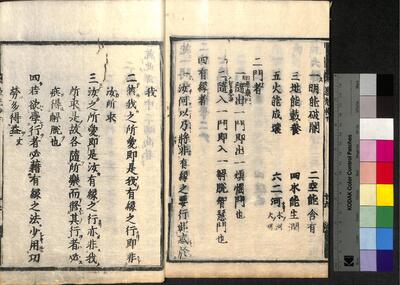 一明能破闇　二空能含有
三地能載養　四水能生潤
五火能成壞　六二河
二門者
一隨出一門即出一煩惱門也
二隨入一門即入一解脱智慧門也
四有縁者
一汝何以乃將非有縁之要行鄣惑於
我
二我之所愛即是我有縁之行即非
汝所求
三汝之所愛即是汝有縁之行亦非我
所求是故各隨所樂而修其行者必
疾得解脱也
四若欲學行者必藉有縁之法少用功
勞多得益文
KODAK Color Control Patches